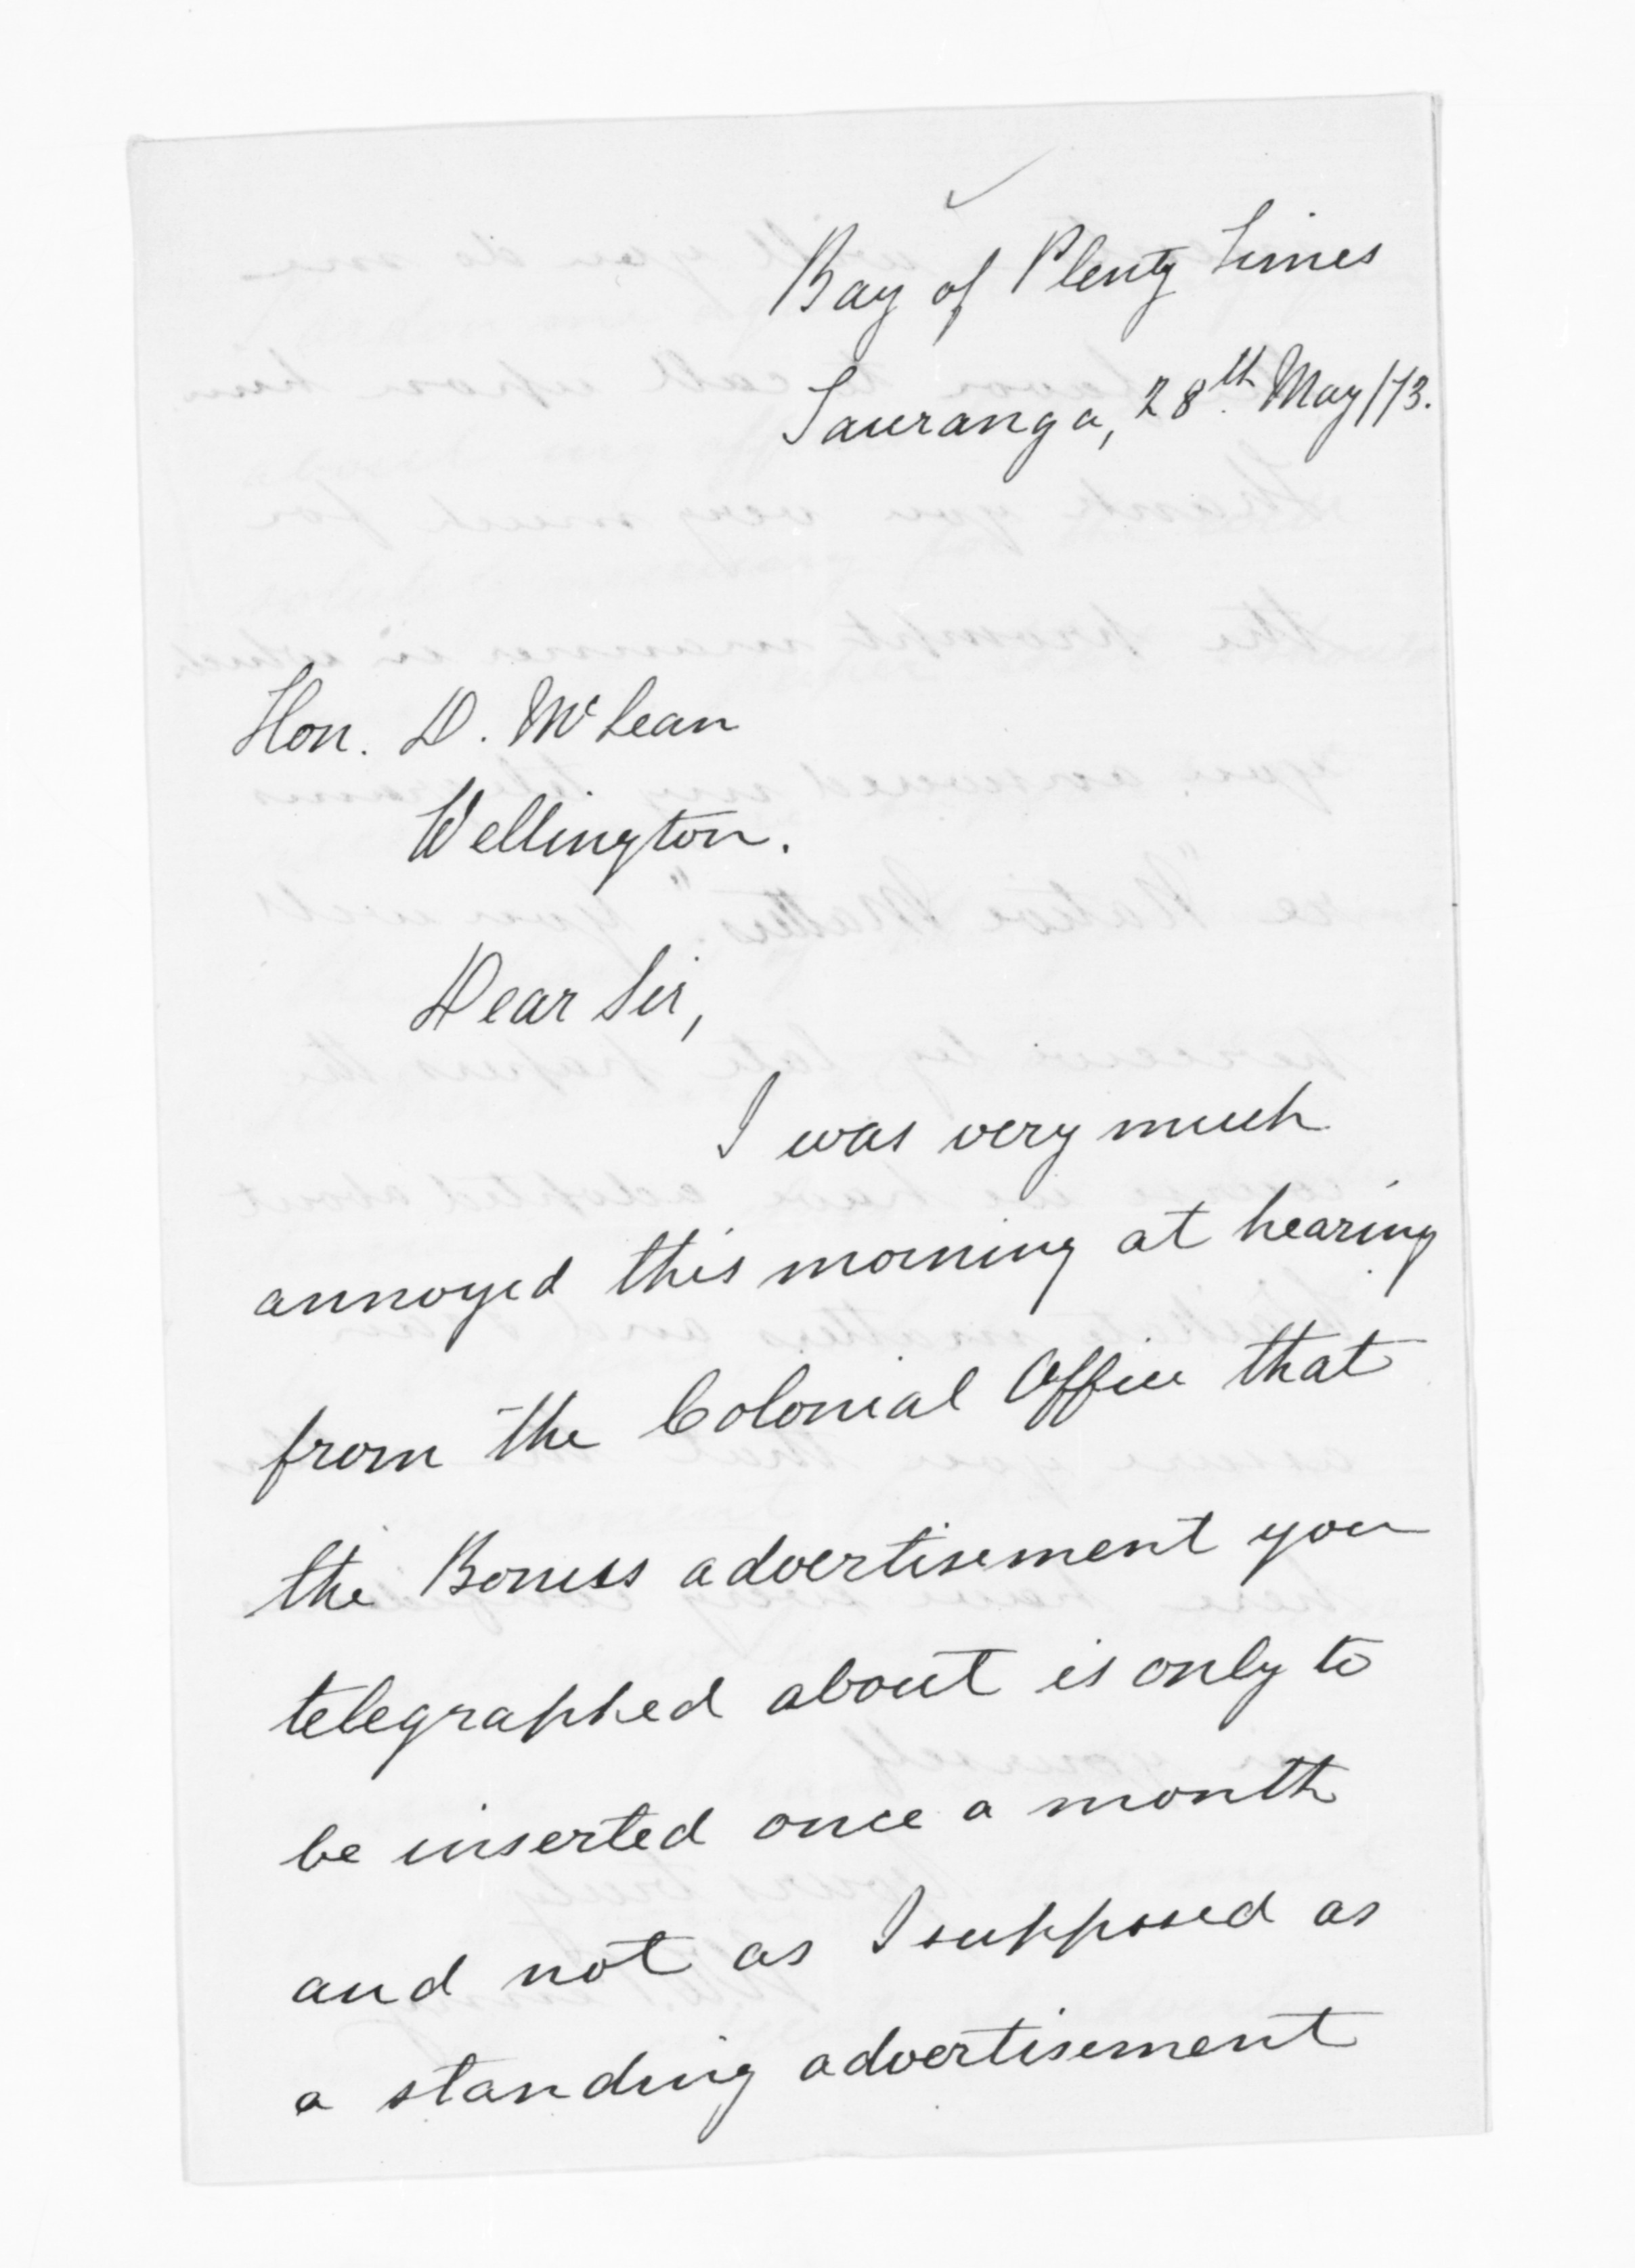 Bay of Plenty Times
Tauranga, 28th May/73.
Hon. D. McLean
Wellington.
Dear Sir,
I was very much
annoyed this morning at hearing
from the Colonial Office that
the Bonuss advertisement you
telegraphed about is only to
be inserted once a month
and not as I supposed as
a standing advertisement